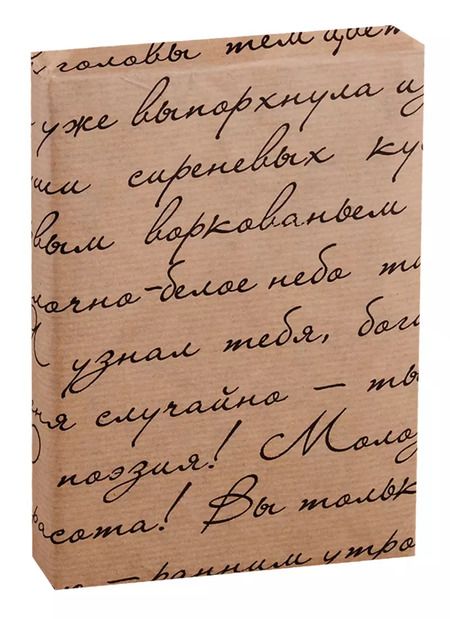 головы тем цвет
уже выпорхнула из
ши сиреневых ку
вым воркованьем
очно-белое небо
узнал тебя, бог
я случайно — ты
поэзия! Моло
асота! Вы тольк
— ранним утро